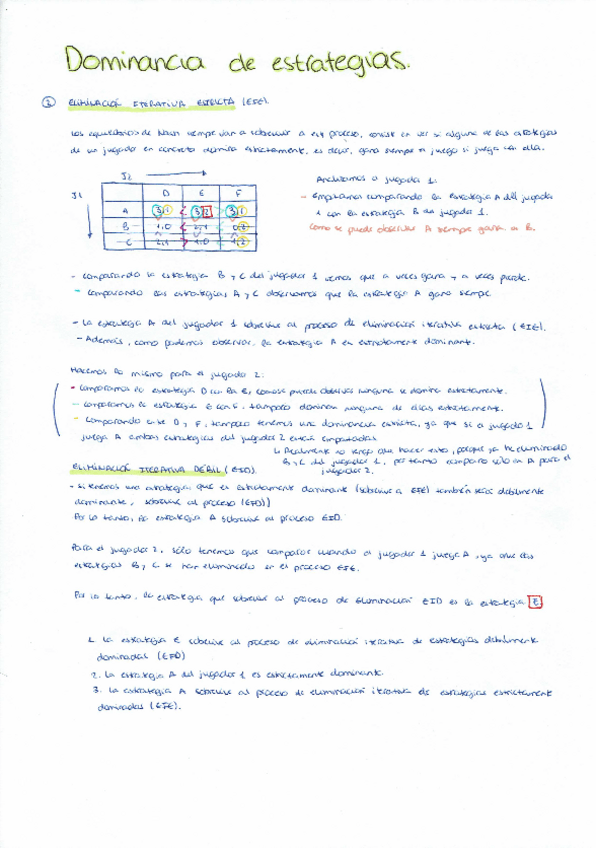 Dominancia de estrategias.
② ELIMINACIÓN ITERATIVA ESTRICTA (EIE).
Los equilibrios de Nash siempre van a sobrevivir a este proceso, consiste en ver si alguna de las estrategias
de un jugador en concreto domina estrictamente, es decir, gana siempre el juego si juega con ella.
J2
J1
D E F
A 3,1 3,2 3,1
B 1,0
C 2,1 1,0 1,2
Analizamos a jugador 1:
- Empezamos comparando la estrategia A del jugador
1 con la estrategia B del jugador 1.
Como se puede observar A siempre gana a B.
- Comparando la estrategia B y C del jugador 1 vemos que a veces gana y a veces pierde.
- Comparando las estrategias A y C observamos que la estrategia A gana siempre.
- La estrategia A del jugador 1 sobrevive al proceso de eliminación iterativa estricta (EIE).
- Además, como podemos observar, la estrategia A es estrictamente dominant.
Hacemos lo mismo para el jugador 2:
- Comparamos la estrategia D con la E, como se puede observar ninguna se domina estrictamente.
- Comparamos la estrategia E con F, tampoco domina ninguna de ellas estrictamente.
- Comparando entre D y F, tampoco tenemos una dominancia estricta, ya que si el jugador 1
juega A ambas estrategias del jugador 2 están empatadas.
↳ Realmente no tengo que hacer esto, porque ya he eliminado
B y C del jugador 1, por tanto comparo sólo en A para el
jugador 2.
ELIMINACIÓN ITERATIVA DÉBIL (EID).
- Si tenemos una estrategia que es estrictamente dominante (sobrevive a EIE) también será débilmente
dominante, sobrevive al proceso (EID))
Por lo tanto, la estrategia A sobrevive al proceso EID.
Para el jugador 2, sólo tenemos que comparar cuando el jugador 1 juega A, ya que las
estrategias B y C se han eliminado en el proceso EIE.
Por lo tanto, la estrategia que sobrevive al proceso de eliminación EID es la estrategia E
1. La estrategia E sobrevive al proceso de eliminación iterativa de estrategias débilmente
dominadas (EID)
2. La estrategia A del jugador 1 es estrictamente dominante.
3. La estrategia A sobrevive al proceso de eliminación iterativa de estrategias estrictamente
dominadas (EIE).